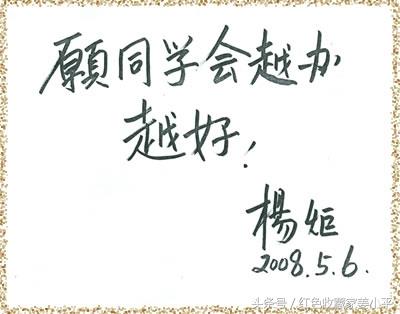 願同学会越办
越好！
楊炬
2008.5.6.
头条号／红色收藏家姜小平